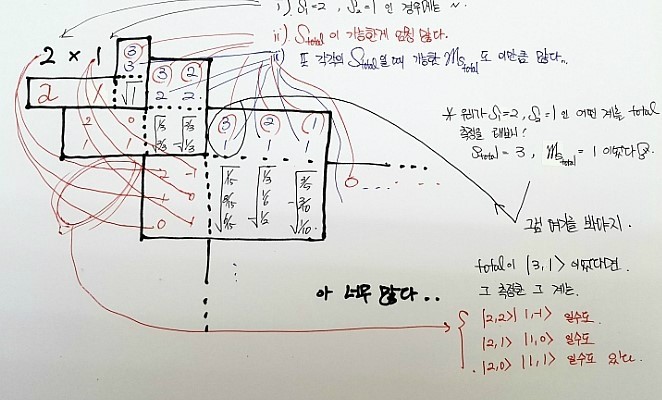 i). S₁=2, S₂=1 인 경우에는 ~.
ii). S total 이 가능한게 엄청 많다.
iii) 또 각각의 S total 일 때 가능한 m s total 도 이만큼 많다..
2 × 1
③
3
2 1
√1
③ ②
2 2
2 0
1 1
√1/3 √2/3
√2/3 -√1/3
③ ② ①
1 1 1
2 -1
1 0
0 1
√1/15 √1/3 √3/5
√8/15 √1/6 -√3/10
√6/15 -√1/2 √1/10
0
* 우리가 S₁=2, S₂=1 인 어떤 계를 total
측정을 해보니
S total = 3, m s total = 1 이었다
그럼 여기를 봐야지.
total이 |3,1> 이었다면.
그 측정한 그 계는.
|2,2>|1,-1> 일수도.
|2,1> |1,0> 일수도
|2,0> |1,1> 일수도 있다.
아 너무 많다..